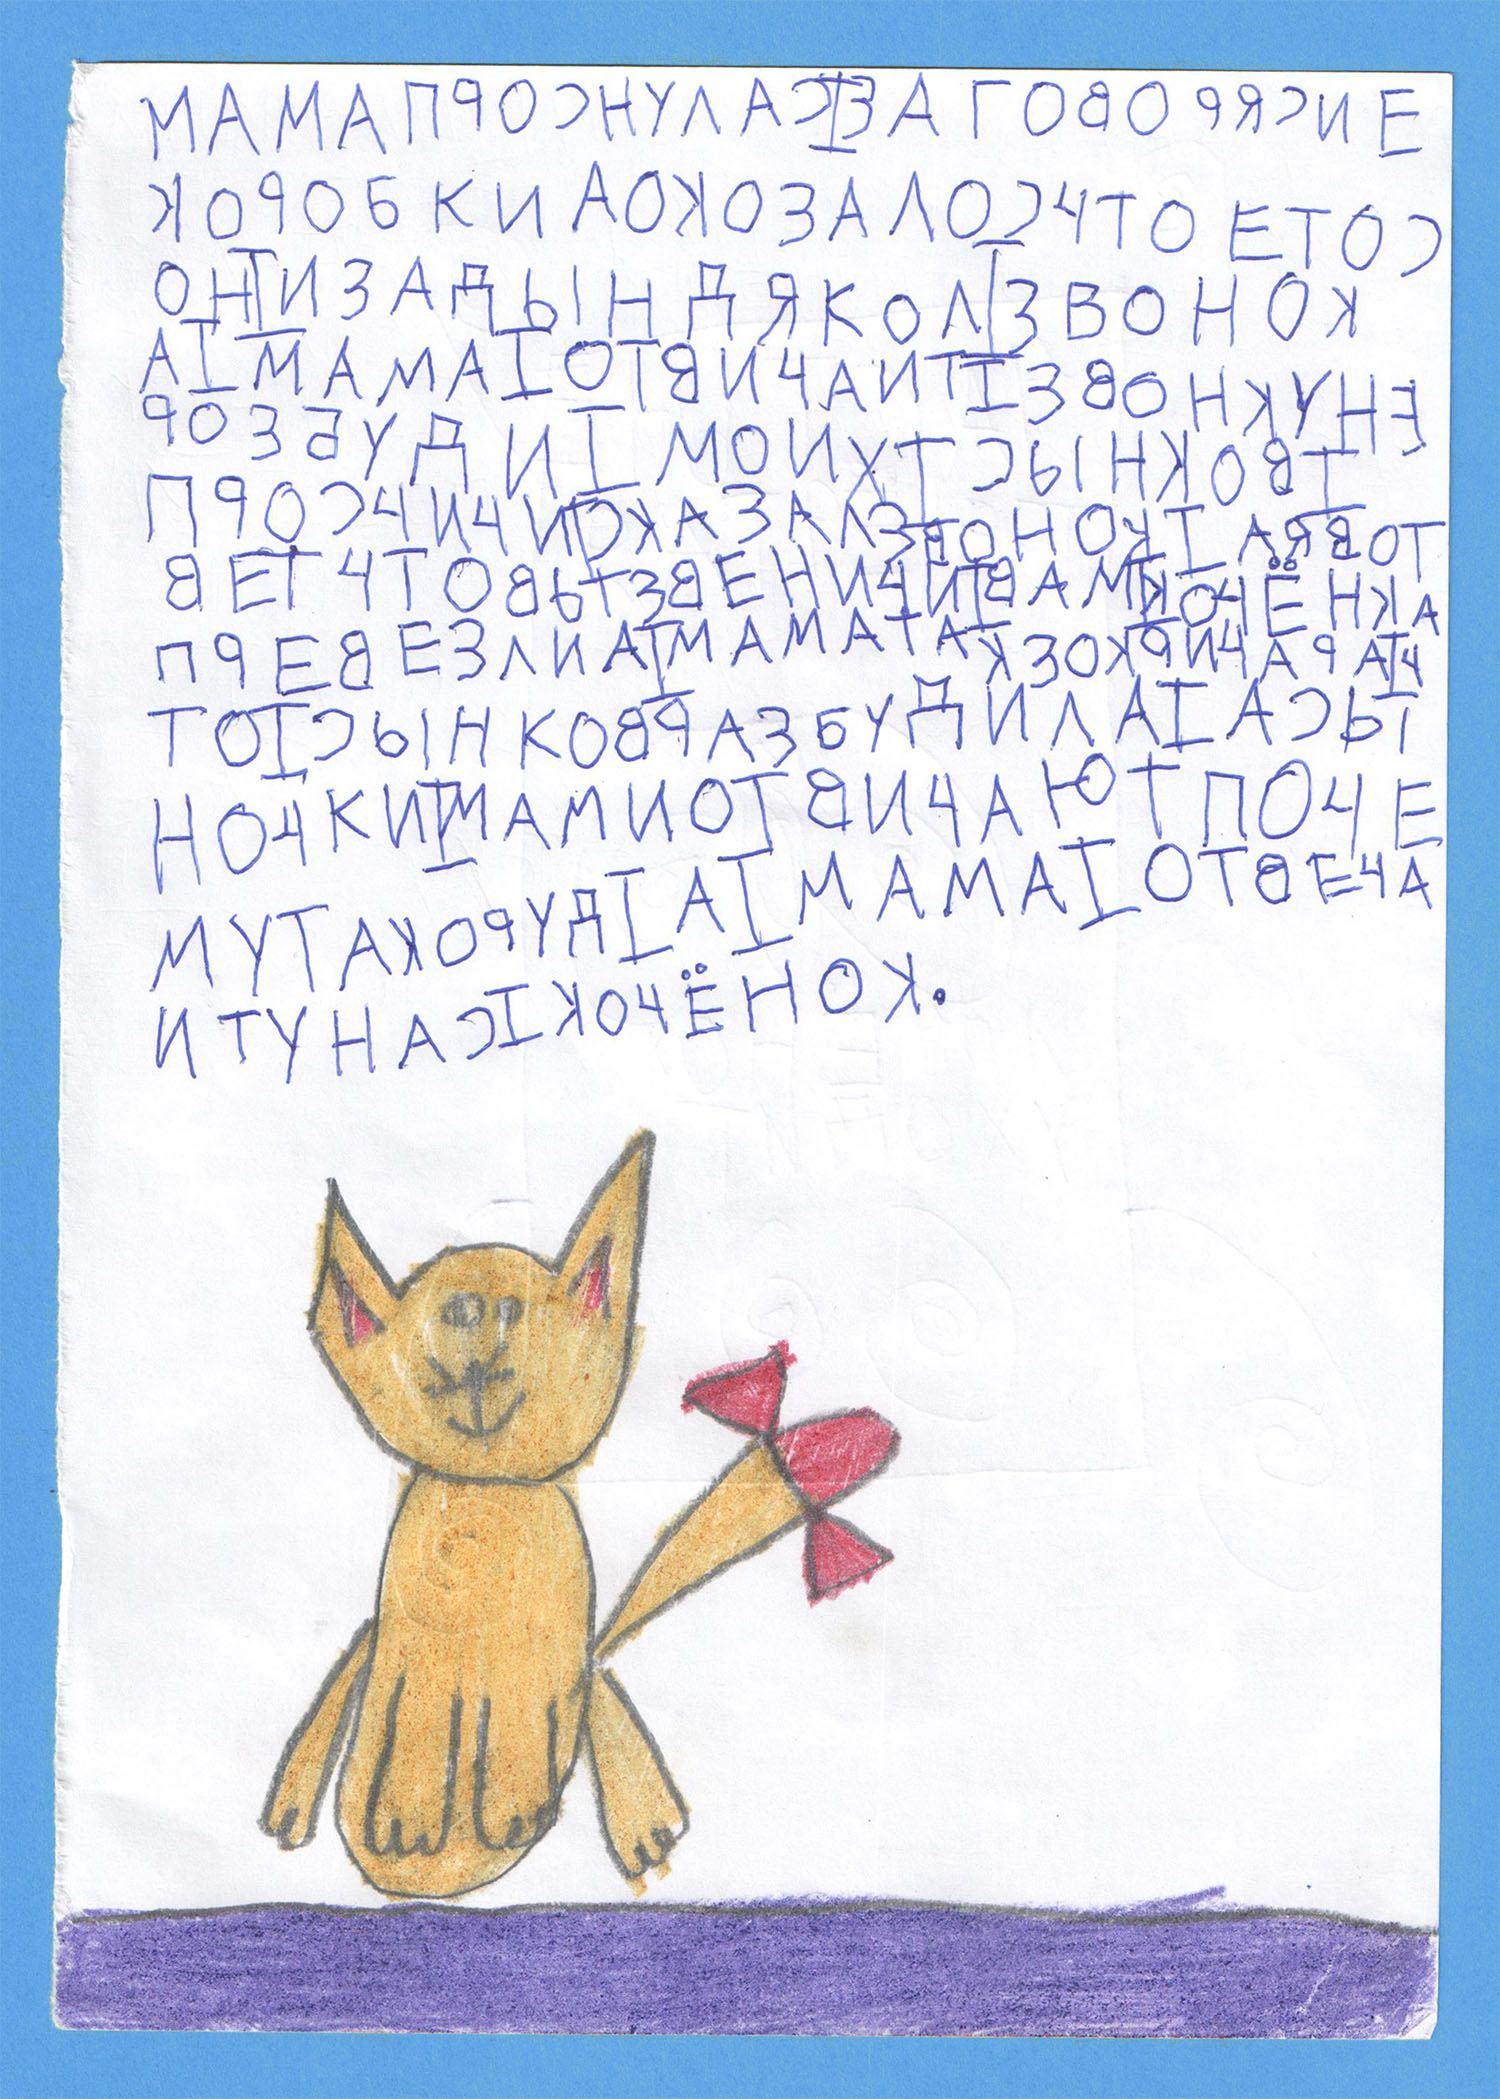 МАМАПРОСНУЛАСIЗАГОВОРЯСИЕ
КОРОБКИАОКОЗАЛОСЧТОЕТОС
ОНIИЗАДЫНДЯКОЛIЗВОНОК
АIМАМАIОТВИЧАИТIЗВОНКУНЕ
РОЗБУДИIМОИХIСЫНКОВI
ПРОСЧИЧИIСКАЗАЛЗВОНОКIАЯВОТ
ВЕТЧТОВЫТЗВЕНИЧИIВАМКОЧЁНКА
ПРЕВЕЗЛИАIМАМАТАКЗОКРИЧАРАIЧ
ТОIСЫНКОВРАЗБУДИЛАIАСЫ
НОЧКИIМАМИОТВИЧАЮТПОЧЕ
МУТАКОРУДIАIМАМАIОТВЕЧА
ИТУНАСIКОЧЁНОК.